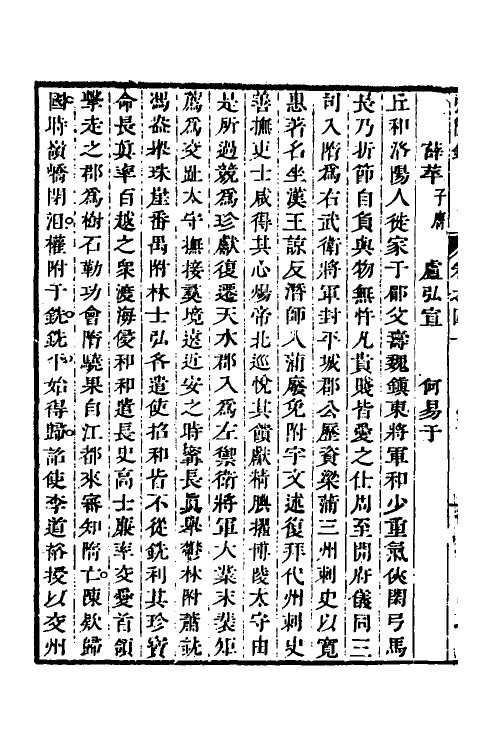 薛苹子膺　盧弘宣　何易于
丘和洛陽人徙家于郿父壽魏鎮東將軍和少重氣俠閑弓馬
長乃折節自負與物無忤凡貴賤皆愛之仕周至開府儀同三
司入隋為右武衛將軍封平城郡公歷資梁蒲三州刺史以寬
惠著名坐漢王諒反潛師入蒲廢免附宇文述復拜代州刺史
善撫吏士咸得其心煬帝北巡悅其饋獻精腆擢博陵太守由
是所過競為珍獻復遷天水郡入為左禦衛將軍大業末裴矩
薦為交趾太守撫接盡境遠近安之時甯長真舉鬱林附蕭銑
馮盎舉珠崖番禺附林士弘各遣使招和皆不從銑利其珍寶
命長眞率百越之衆渡海侵和和遣長史高士廉率交愛首領
擊走之郡為樹石勒功會隋驍果自江都來審知隋亡陳欵歸
國時嶺嶠閉沮權附于銑銑平始得歸詔使李道裕授以交州